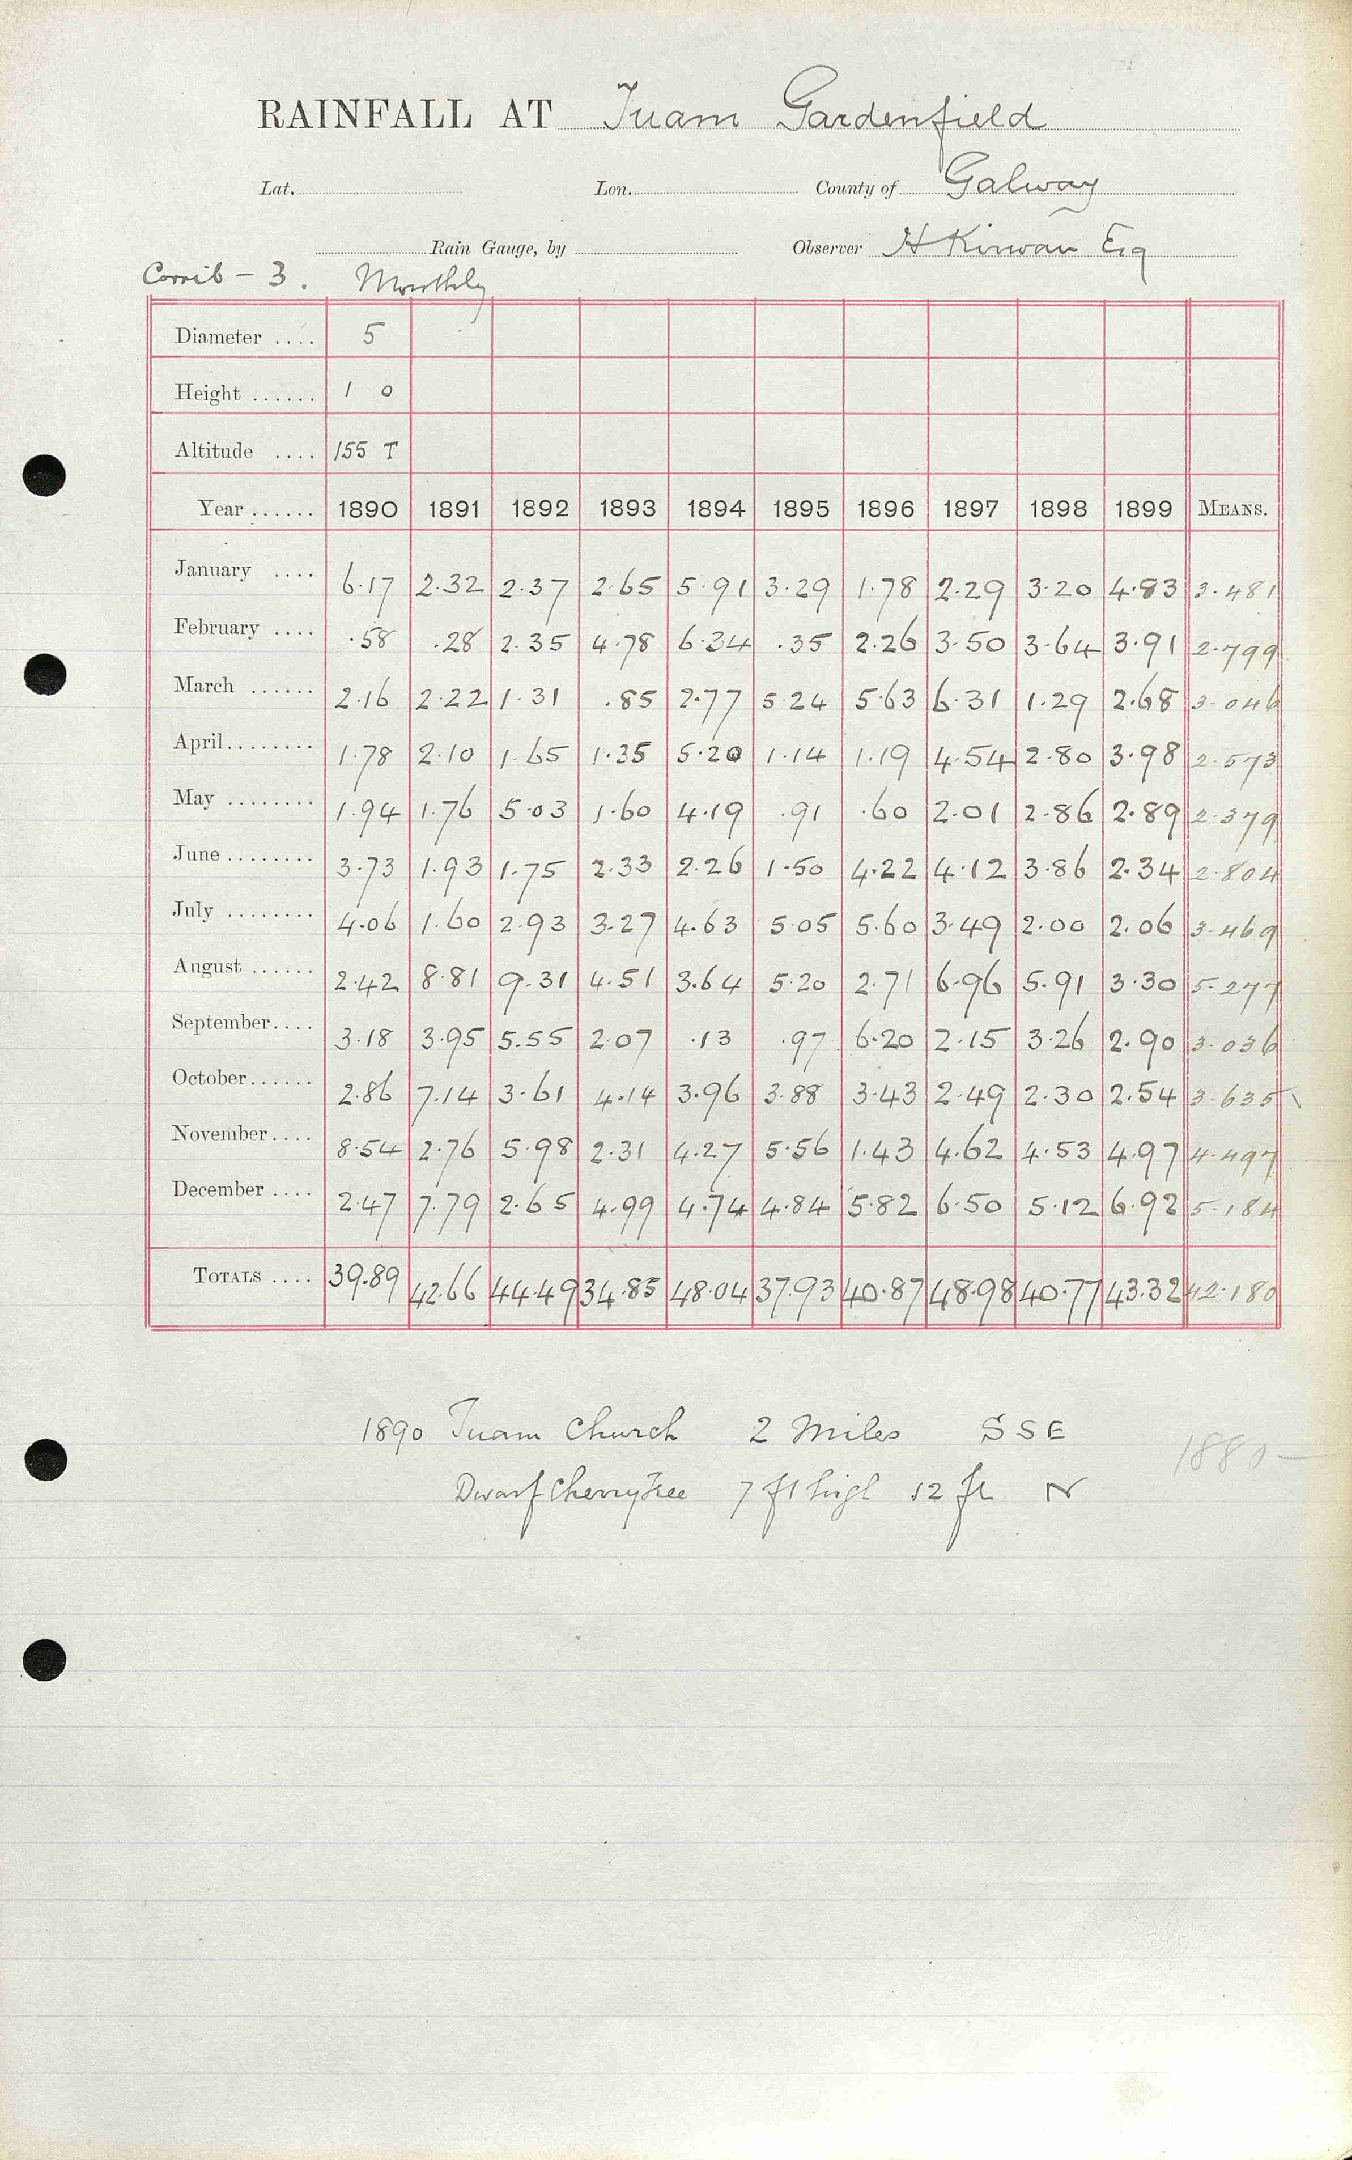 RAINFALL AT Tuam Gardenfield
Lat. Lon. County of Galway
Rain Gauge, by Observer H Kirwan Esq
Corrib - 3. Monthly
Diameter .... 5
Height ...... 1 0
Altitude .... 155 T
Year ...... 1890 1891 1892 1893 1894 1895 1896 1897 1898 1899 MEANS.
January .... 6.17 2.32 2.37 2.65 5.91 3.29 1.78 2.29 3.20 4.83 3.481
February .... .58 .28 2.35 4.78 6.34 .35 2.26 3.50 3.64 3.91 2.799
March ...... 2.16 2.22 1.31 .85 2.77 5.24 5.63 6.31 1.29 2.68 3.046
April........ 1.78 2.10 1.65 1.35 5.20 1.14 1.19 4.54 2.80 3.98 2.573
May ........ 1.94 1.76 5.03 1.60 4.19 .91 .60 2.01 2.86 2.89 2.379
June ........ 3.73 1.93 1.75 2.33 2.26 1.50 4.22 4.12 3.86 2.34 2.804
July ........ 4.06 1.60 2.93 3.27 4.63 5.05 5.60 3.49 2.00 2.06 3.469
August ...... 2.42 8.81 9.31 4.51 3.64 5.20 2.71 6.96 5.91 3.30 5.277
September.... 3.18 3.95 5.55 2.07 .13 .97 6.20 2.15 3.26 2.90 3.036
October...... 2.86 7.14 3.61 4.14 3.96 3.88 3.43 2.49 2.30 2.54 3.635
November.... 8.54 2.76 5.98 2.31 4.27 5.56 1.43 4.62 4.53 4.97 4.497
December .... 2.47 7.79 2.65 4.99 4.74 4.84 5.82 6.50 5.12 6.92 5.184
TOTALS .... 39.89 42.66 44.49 34.85 48.04 37.93 40.87 48.98 40.77 43.32 42.180
1890 Tuam Church 2 Miles SSE
1880-
Dwarf Cherry Tree 7 ft high 12 ft N